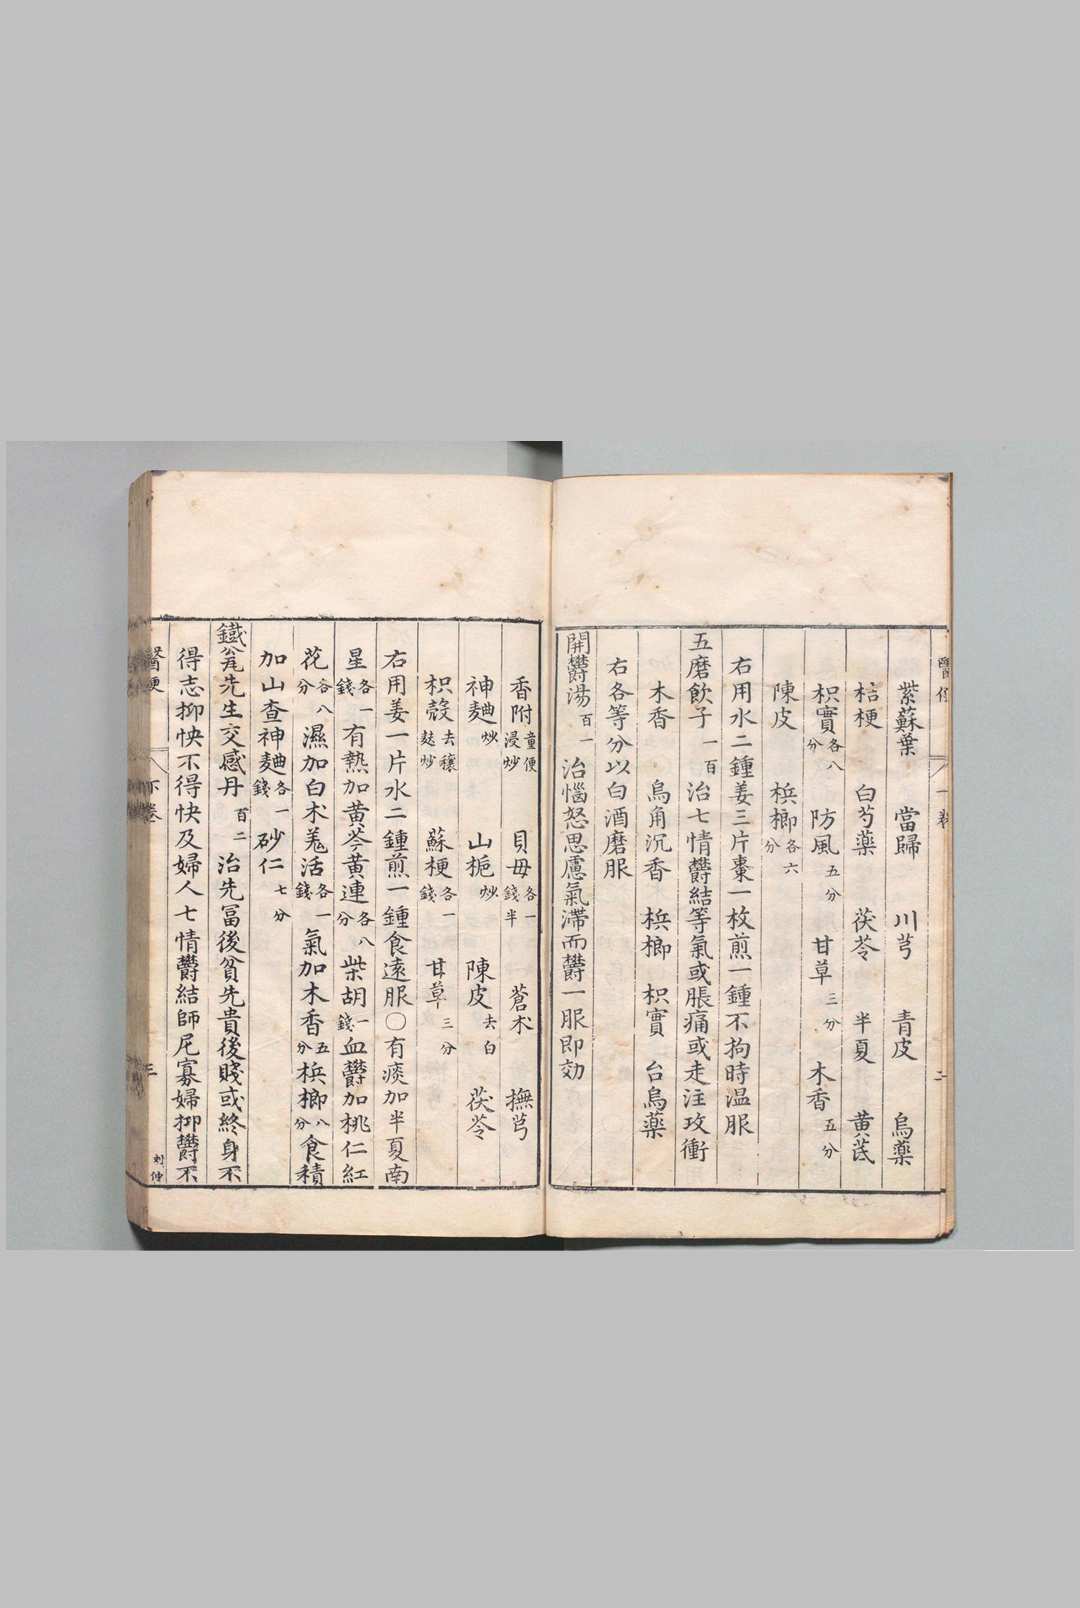 紫蘇葉 當歸 川芎 青皮 烏藥
桔梗 白芍藥 茯苓 半夏 黄芪
枳實各八分 防風五分 甘草三分 木香五分
陳皮 梹榔各六分
右用水二鍾姜三片棗一枚煎一鍾不拘時温服
五磨飲子一百 治七情欝結等氣或脹痛或走注攻衝
木香 烏角沉香 梹榔 枳實 台烏藥
右各等分以白酒磨服
開欝湯百一 治惱怒思慮氣滯而欝一服即効
香附童便浸炒 貝母各一錢半 蒼朮 撫芎
神麯炒 山梔炒 陳皮去白 茯苓
枳殼去穰麸炒 蘇梗各一錢 甘草三分
右用姜一片水二鍾煎一鍾食遠服〇有痰加半夏南
星各一錢 有熱加黄芩黄連各八分柴胡一錢血欝加桃仁紅
花各八分 濕加白朮羗活各一錢 氣加木香五分梹榔八分食積
加山查神麯各一錢 砂仁七分
鐵瓮先生交感丹百二 治先冨後貧先貴後賤或終身不
得志抑怏不得快及婦人七情欝結師尼寡婦抑欝不
醫便 下卷 三 刘仲